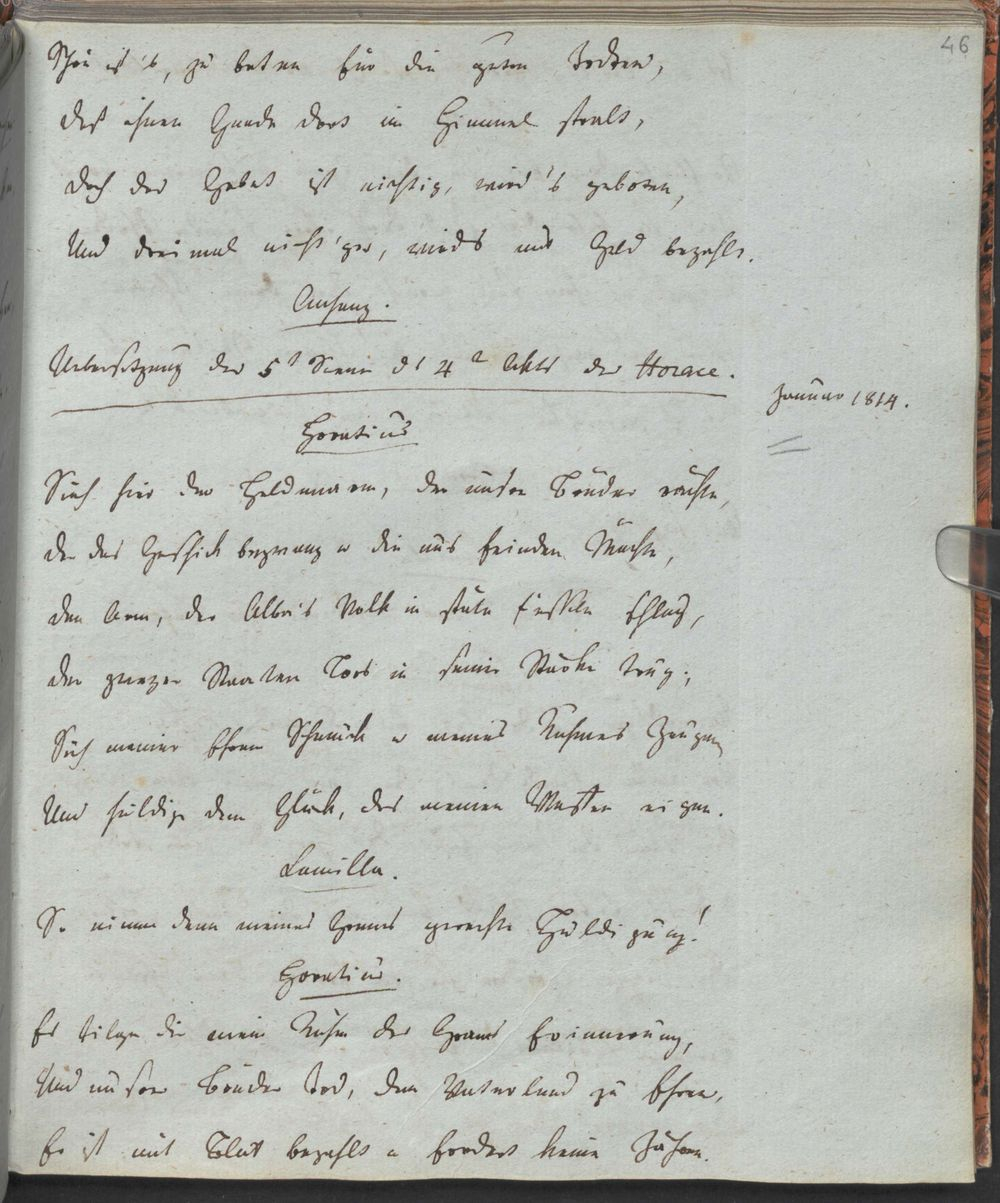 46
Schön ist's, zu beten für die guten Todten,
Daß ihnen Gnade dort im Himmel stralt,
Doch das Gebet ist nichtig, wird's geboten,
Und dreimal nicht'ger, wirds mit Geld bezahlt.
Anhang.
Uebersetzung der 5t Scene ds 4t Akts der Horace.
Januar 1814.
Horatius
Sieh hier den Heldenarm, der unsre Brüder rächte,
der das Geschick bezwang u die uns feinden Mächte,
den Arm, der Alba's Volk in stäte Fesseln schlug,
der ganzer Staaten Loos in seiner Stärke trug;
Sieh meiner Ehren Schmuck u meines Ruhmes Zeugen
Und huldige dem Glück, das meinen Waffen eigen.
Camilla.
So nimm denn meines Grams gerechte Huldigung!
Horatius.
Es tilge dir mein Ruhm des Grams Erinnerung,
Und unsrer Brüder Tod, dem Vaterland zu Ehren,
Er ist mit Blut bezahlt u fordert keine Zähren.